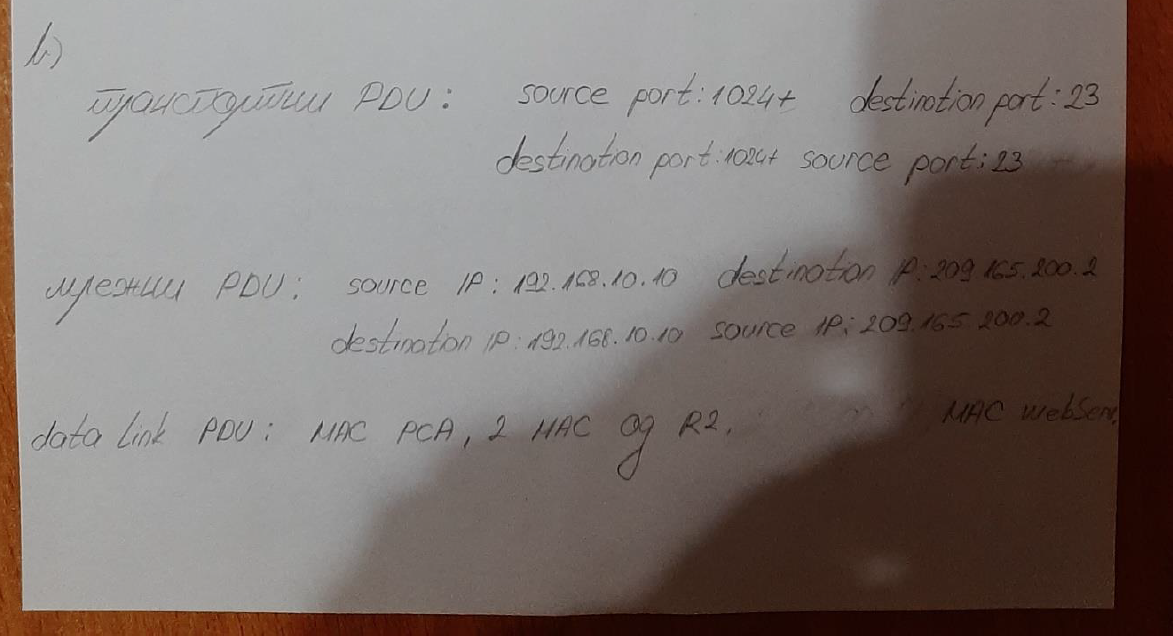 b)
транспортни PDU: source port: 1024+ destination port: 23
destination port: 1024+ source port: 23
мрежни PDU: source IP: 192.168.10.10 destination IP: 209.165.200.2
destination IP: 192.168.10.10 source IP: 209.165.200.2
data link PDU: MAC PCA, 2 MAC од R2. MAC webServ